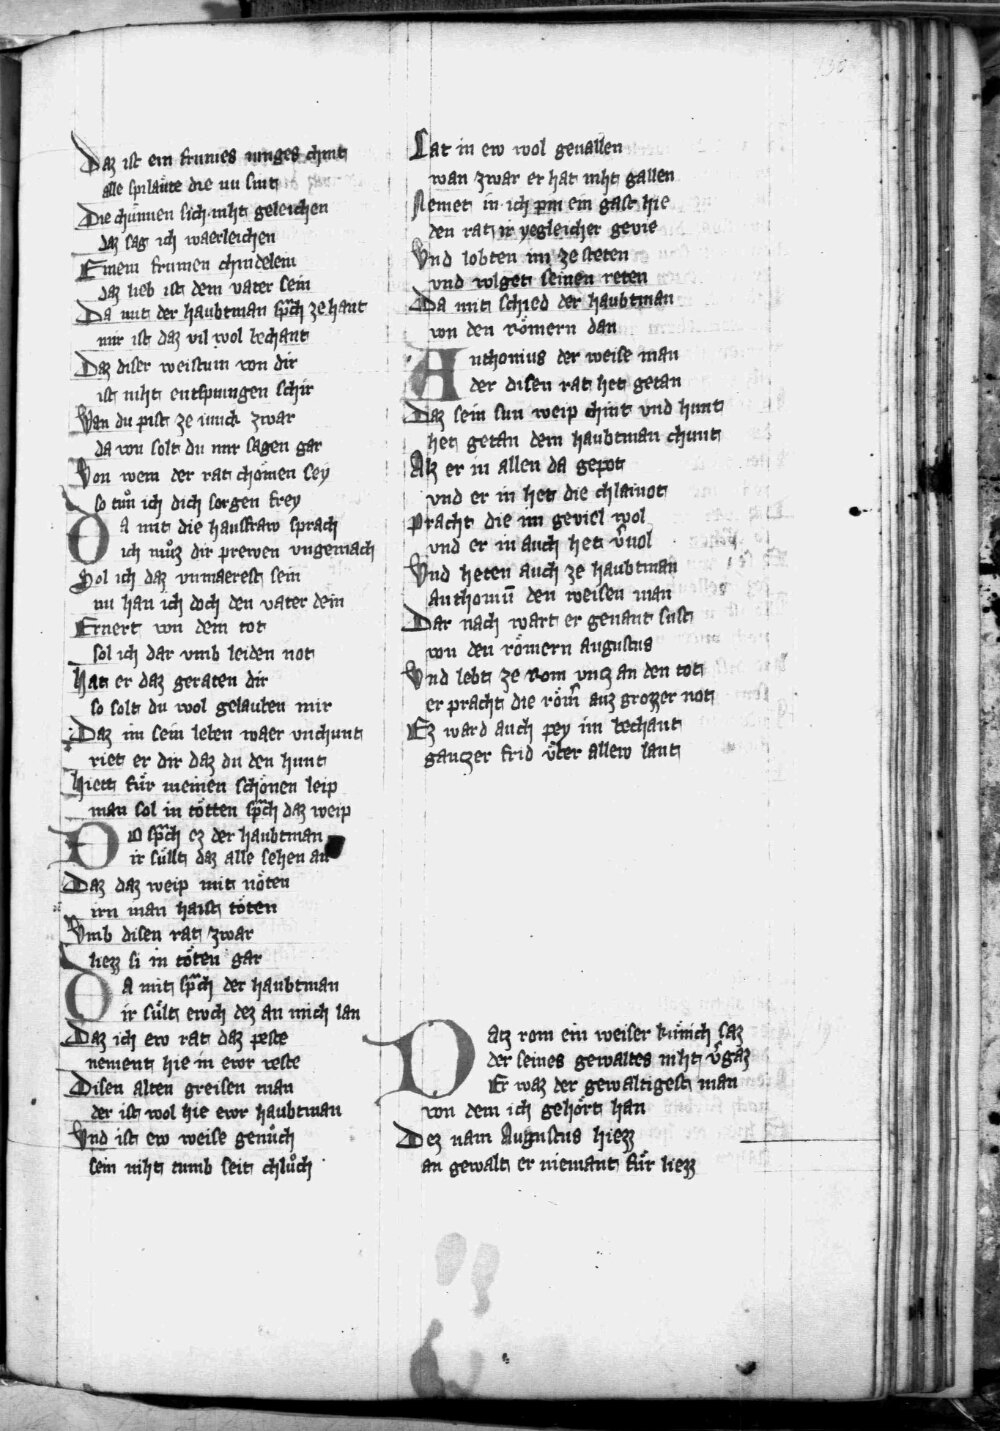 Daz ist ein frumes iunges chint
alle spilaͤute die nu sint
Die chuͤnnen sich niht geleichen
daz sag ich waerleichen
Einem frumen chindelein
daz lieb ist dem vater sein
Da mit der haubtman sprach ze hant
mir ist daz vil wol bechant
Daz diser weistum von dir
ist niht entsprungen schir
Wan du pist ze iunck zwar
da von solt du mir sagen gar
Von wem der rat chomen sey
so tuͦn ich dich sorgen frey
Da mit die hausfraw sprach
ich muͦz dir prewen vngemach
Sol ich daz vnmaerest sein
nu han ich doch den vater dein
Ernert von dem tot
sol ich dar vmb leiden not
Hat er daz geraten dir
so solt du wol gelauben mir
Daz im sein leben waer vnchunt
riet er dir daz du den hunt
Hiett fuͤr meinen schoͤnen leip
man sol in toͤtten sprach daz weip
Do sprach ez der haubtman
ir suͤllt daz alle sehen an
Daz daz weip mit noͤten
irn man haist toͤten
Vmb disen rat zwar
liezz si in toͤten gar
Da mit sprach der haubtman
ir suͤlt ewch dez an mich lan
Daz ich ew rat daz peste
nement hie in ewr veste
Disen alten greisen man
der ist wol hie ewr haubtman
Vnd ist ew weise genuͦch
sein niht tumb seit chluͦch
Lat in ew wol geuallen
wan zwar er hat niht gallen
Nemet in ich pin ein gast hie
den rat ir yegleicher gevie
Vnd lobten im ze steten
vnd volget seinen reten
Da mit schied der haubtman
von den roͤmern dan
Anthonius der weise man
der disen rat het getan
Daz sein sun weip chint vnd hunt
het getan dem haubtman chunt
Alz er in allen da gepot
vnd er in het die chlainot
Pracht die im geviel wol
vnd er in auch het v̂nol
Vnd heten auch ze haubtman
anthoniū den weisen man
Dar nach wart er genant sust
von den roͤmern augustus
Vnd lebt ze Rom vntz an den tot
er pracht die roͤm̄ auz grozzer not
Ez ward auch pey im bechant
gantzer frid vͤber allew lant
Datz rom ein weiser kuͤnich saz
der seines gewaltes niht v̂gaz
Er waz der gewaltigest man
von dem ich gehoͤrt han
Dez nam Augustus hiezz
an gewalt er niemant fuͤr liezz